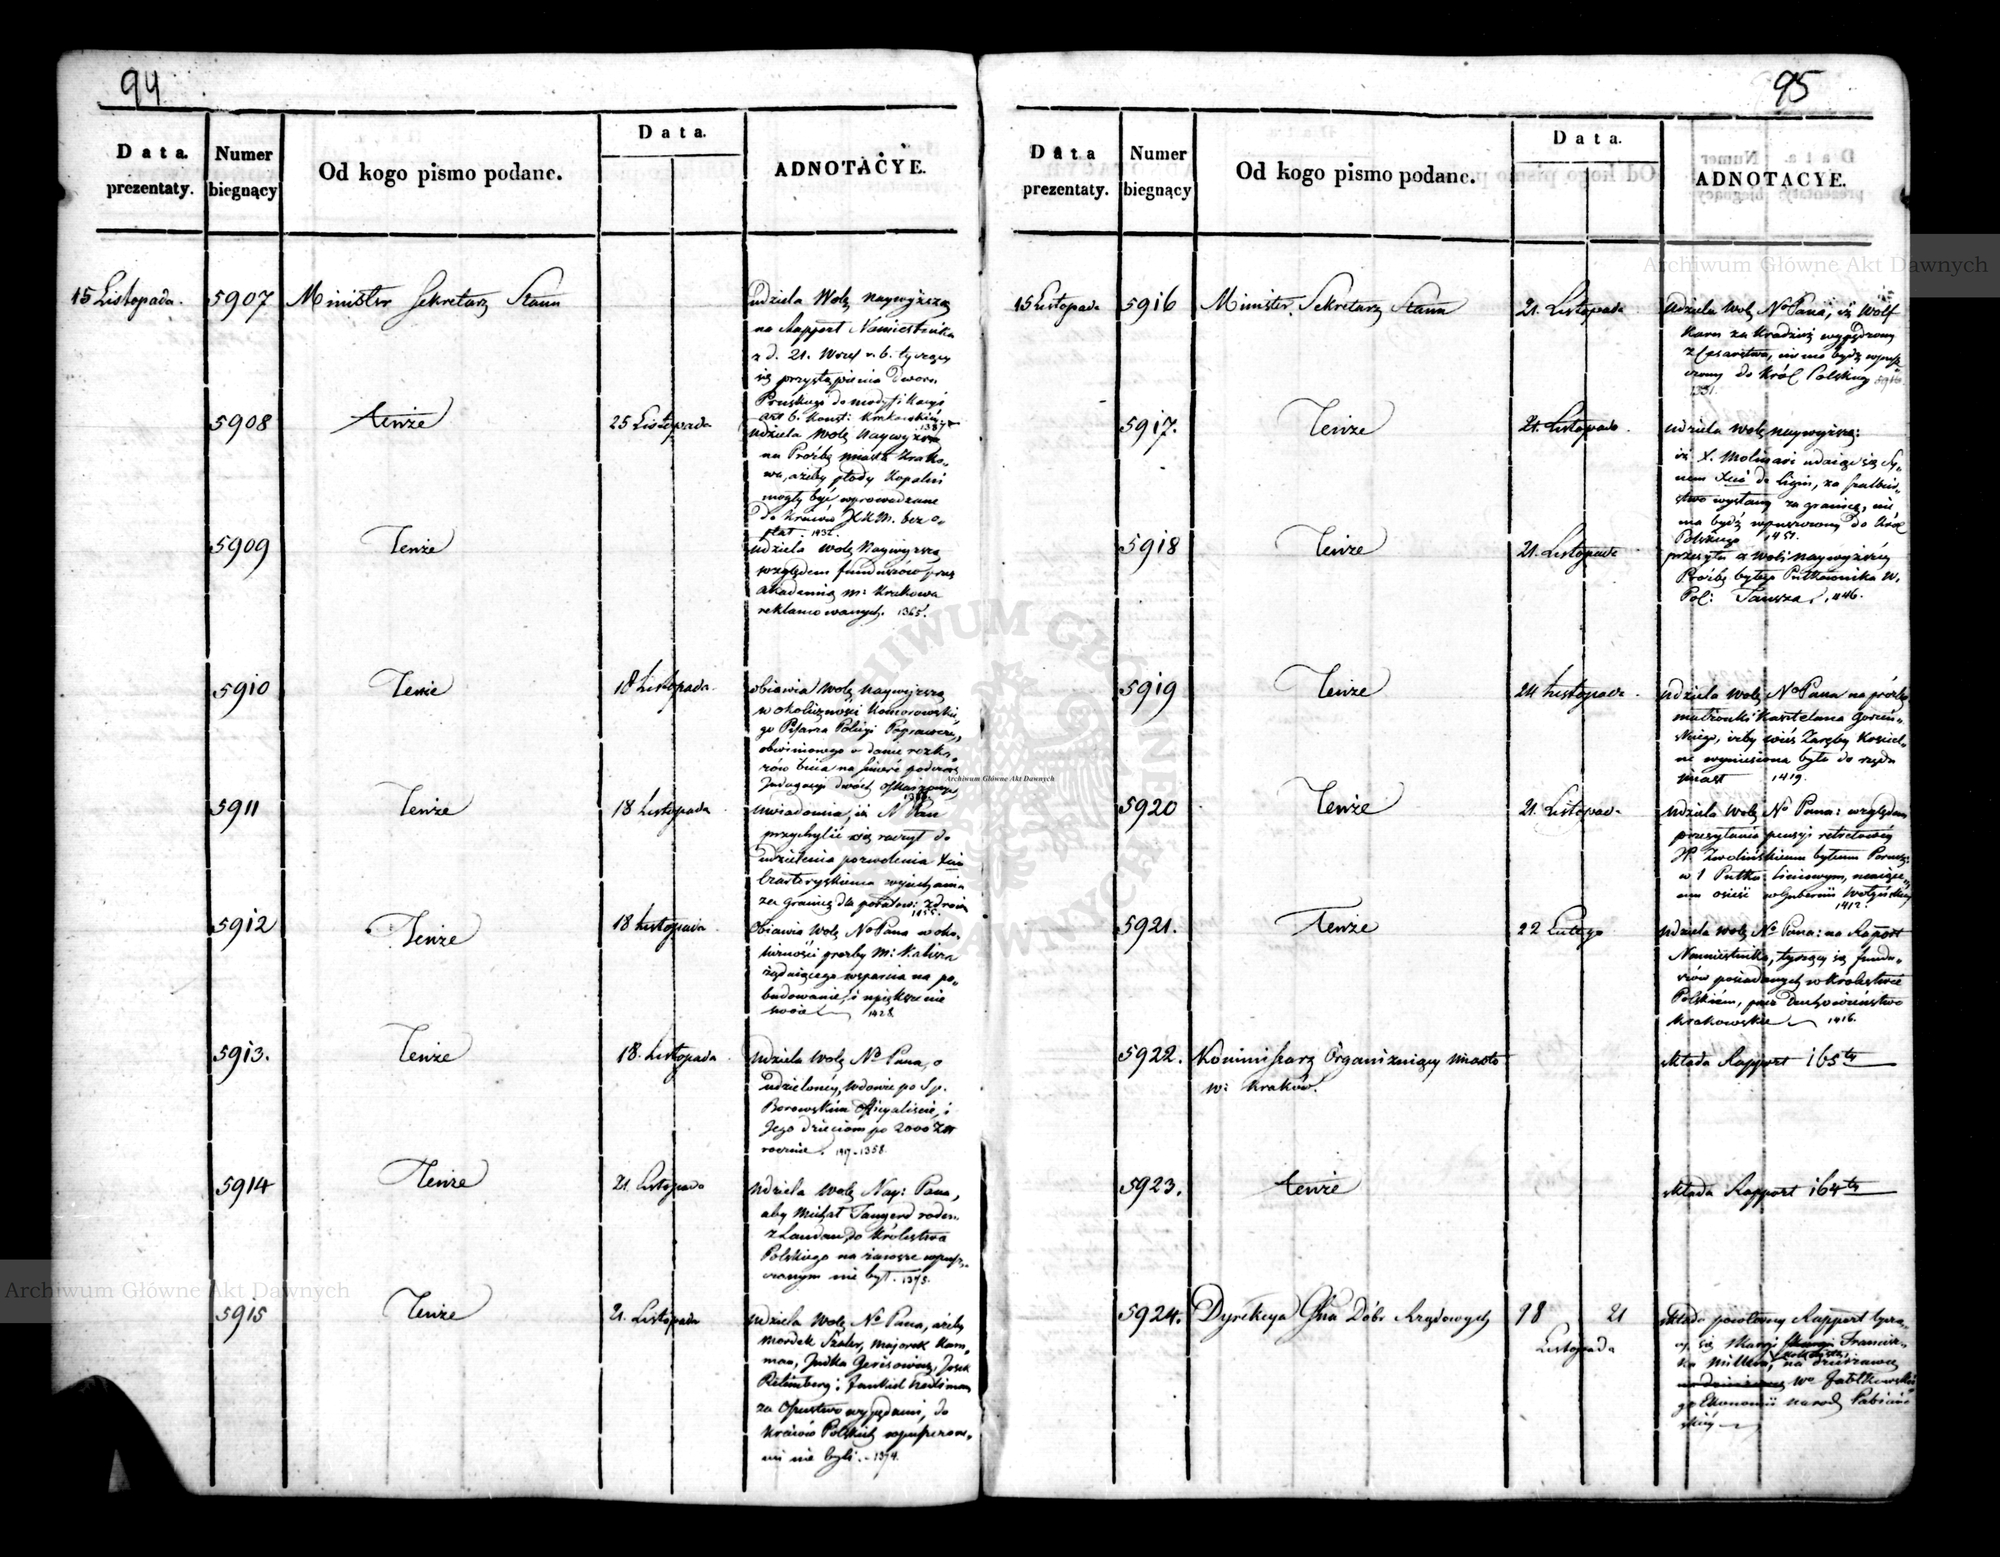 94
Data. prezentaty.
Numer biegnący
Od kogo pismo podane.
Data.
ADNOTACYE.
15 Listopada. 5907 Minister Sekretarz Stanu
udziela Wolę Naywyższą
na Rapport Namiestnika
z d. 21. Wrześ r. b. tyczący
się przystąpienia Dworu
Pruskiego do modyfikacyi
art 6. Konst: Krakowskiéy
5908 tenże 25 Listopada
udziela Wolę Naywyższą
na Prośbę miasta Krako-
wa, ażeby płody Kopalń
mogły być wprowadzane
do Kraiów J.K.M. bez o-
płat. 1432.
5909 Tenże
udziela Wolę Naywyższą
względem funduszów przez
Akademią m: Krakowa
reklamowanych. 1365.
5910 Tenże 18 Listopada.
obiawia Wolę Naywyższą
w okoliczności Komorowskie-
go Pisarza Policyi Poprawczey,
obwinionego o danie rozka-
zów bicia na śmierć podczas
Indagacyi dwóch
5911 Tenże 18 Listopada
uwiadomia, iż N Pan
przychylić się raczył do
udzielenia pozwolenia Xciu
Czartoryskiemu wyiechania
za granicę dla poratow: zdrowia
1455.
5912 Tenże 18 Listopada.
Obiawia Wolę No Pana w oko-
liczności prośby m: Kalisza
żądaiącego wsparcia na po-
budowanie, i upiększenie
swoie 1428
5913. Tenże 18. Listopada.
Udziela Wolę No Pana, o
udzieloney, wdowie po Sp.
Borowskim Officyaliście, i
Jego dzieciom po 2000 Zł
rocznie. 1358.
5914 Tenże 21 Listopada
Udziela Wolę Nay: Pana,
aby Michał Tangerd rodem
z Landau, do Królestwa
Polskiego na zawsze wpusz-
czonym nie był. 1375.
5915 Tenże 21. Listopada
udziela Wolę No Pana, ażeby
Mordek Szaler, Majorek Kam-
man, Judka Gerisowicz, Josek
Ritimberg i Jankiel
za Oszustwo wypędzeni, do
Kraiów Polskich wpuszczone-
mi nie byli. 1374.
95
Data prezentaty.
Numer biegnący
Od kogo pismo podane.
Data.
ADNOTACYE.
15 Listopada 5916 Minister. Sekretarz Stanu 21. Listopada
Udziela Wolę No Pana, iż Wolf
Karn za Kradzież wypędzony
z Cesarstwa, nie ma bydź wpusz-
czony do Król Polskiego
1351.
5917. Tenże 21. Listopada.
udziela Wolę Naywyższą:
iż X. Molinari udaiąc się Sy-
nem Xcia de Ligin, za fałszer-
stwo wysłany za granicę, nie
ma bydź wpuszczony do Król
Polskiego 1451.
5918 Tenże 21. Listopada
przesyła z Woli Naywyższéy
Prośbę byłego Pułkownika W.
Pol: Tausza. 1446.
5919 Tenże 24 Listopada.
Udziela Wolę No Pana na prośbę
małżonki Kasztelana Goreń-
skiego, iżby wieś Zaręby Kościel-
ne wyniesiona była do rzędu
miast 1419.
5920 Tenże 21. Listopada
Udziela Wolę No Pana: względem
przesyłania pensyi retretowéy
JP. Zwolińskiemu byłemu Porucz:
w 1 Pułku liniowym,
osieść w Gubernii Wołyńskiey
1412.
5921. Tenże 22 Lutego
Udziela Wolę No Pana: na Raport
Namiestnika, tyczący się fundu-
szów posiadanych w Królestwie
Polskiem, przez Duchowieństwo
Krakowskie 1416.
5922. Kommissarz Organizuiący miasto
W: Kraków.
składa Rapport 165ty
5923. tenże
składa Rapport 164ty
5924. Dyrekcya Głna Dóbr Rządowych 18 21
Listopada
składa powtórny Rapport tycza-
cy się Skargi Francisz-
ka Millera, na dzierżawcę
Wo Jabłkowskie-
go Ekonomii narod Pabiani-
skiéy
Archiwum Główne Akt Dawnych
Archiwum Główne Akt Dawnych
Archiwum Główne Akt Dawnych